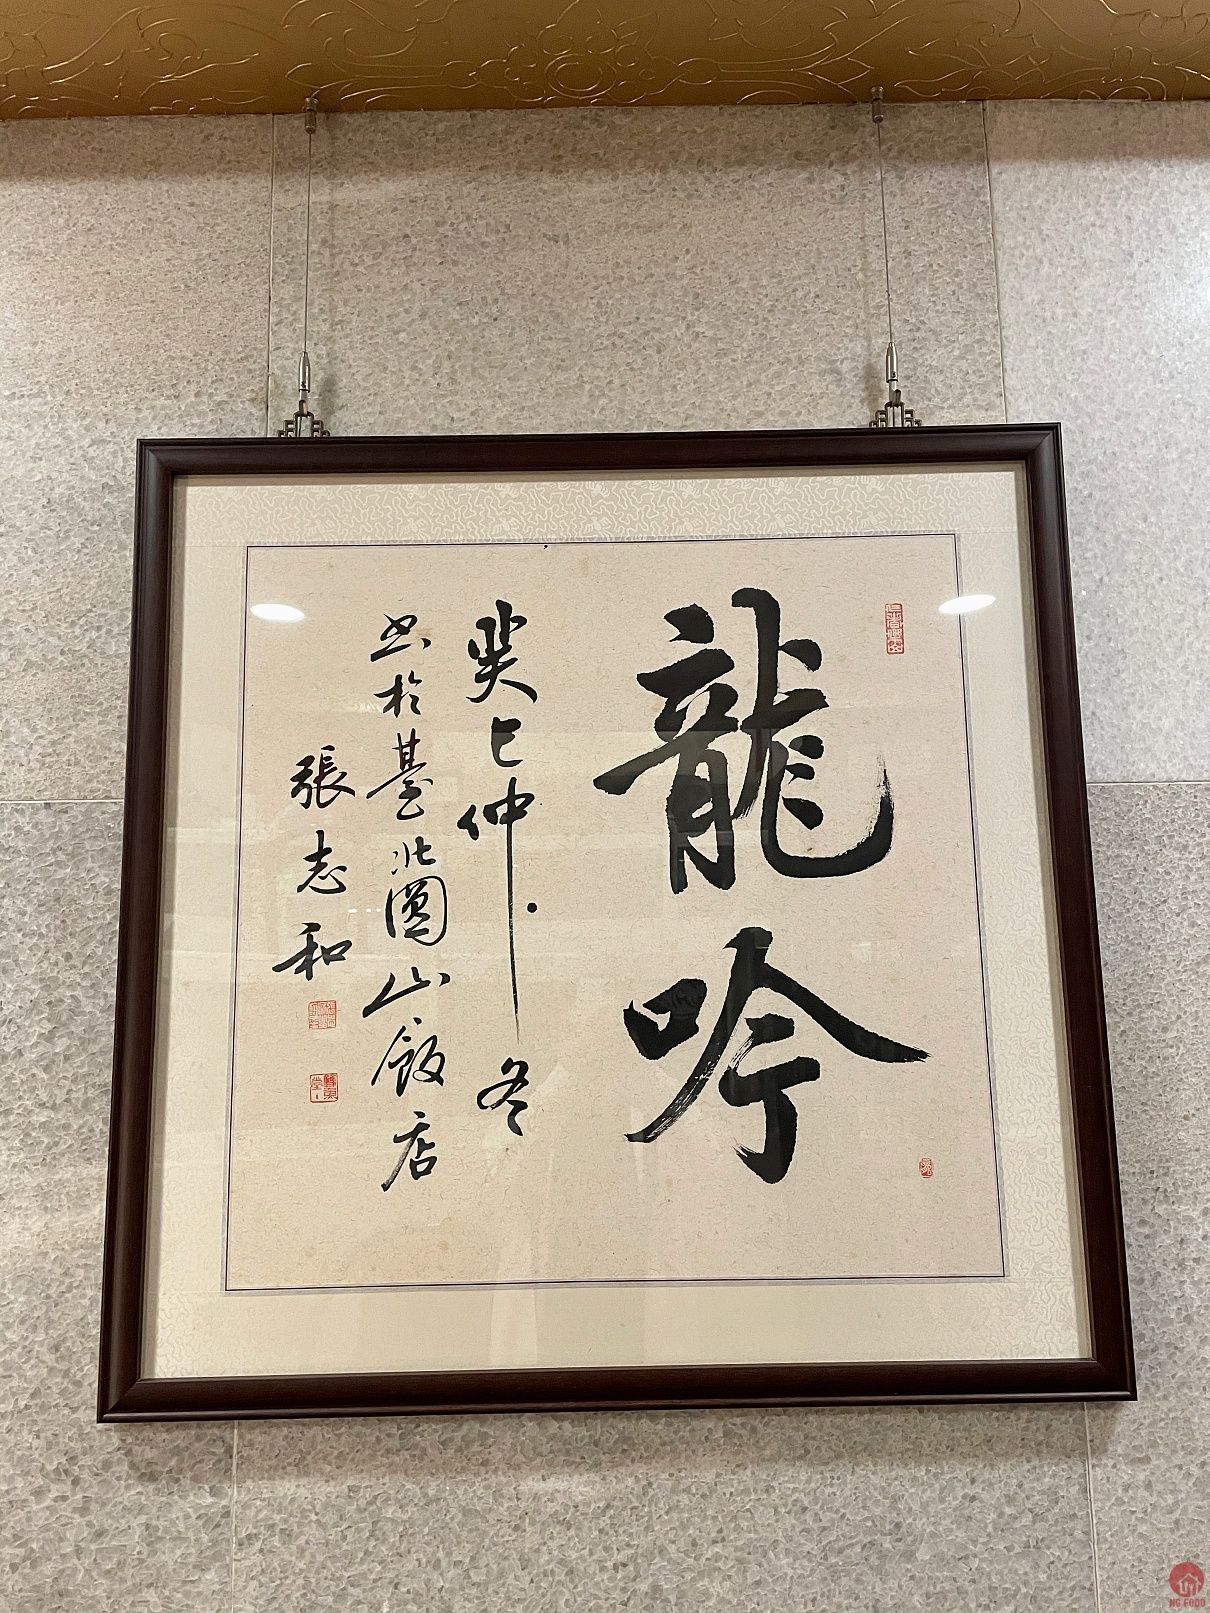 龍吟
癸巳仲冬
书於臺北圓山飯店
張志和
NG FOOD